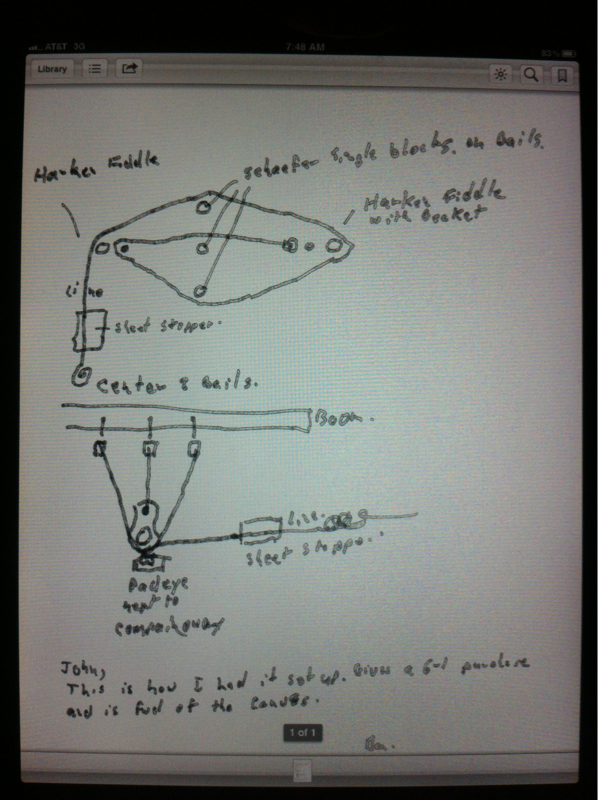 AT&T 3G
7:48 AM
82%
Library
Harker Fiddle
schaefer single blocks. on Bails.
Harker Fiddle
with Becket
Line
sheet stopper.
Center & Bails.
Boom.
Line.
sheet stopper.
Padeye
next to
companionway
John,
This is how I had it set up. Gives a 6-1 purchase
and is fwd of the
1 of 1